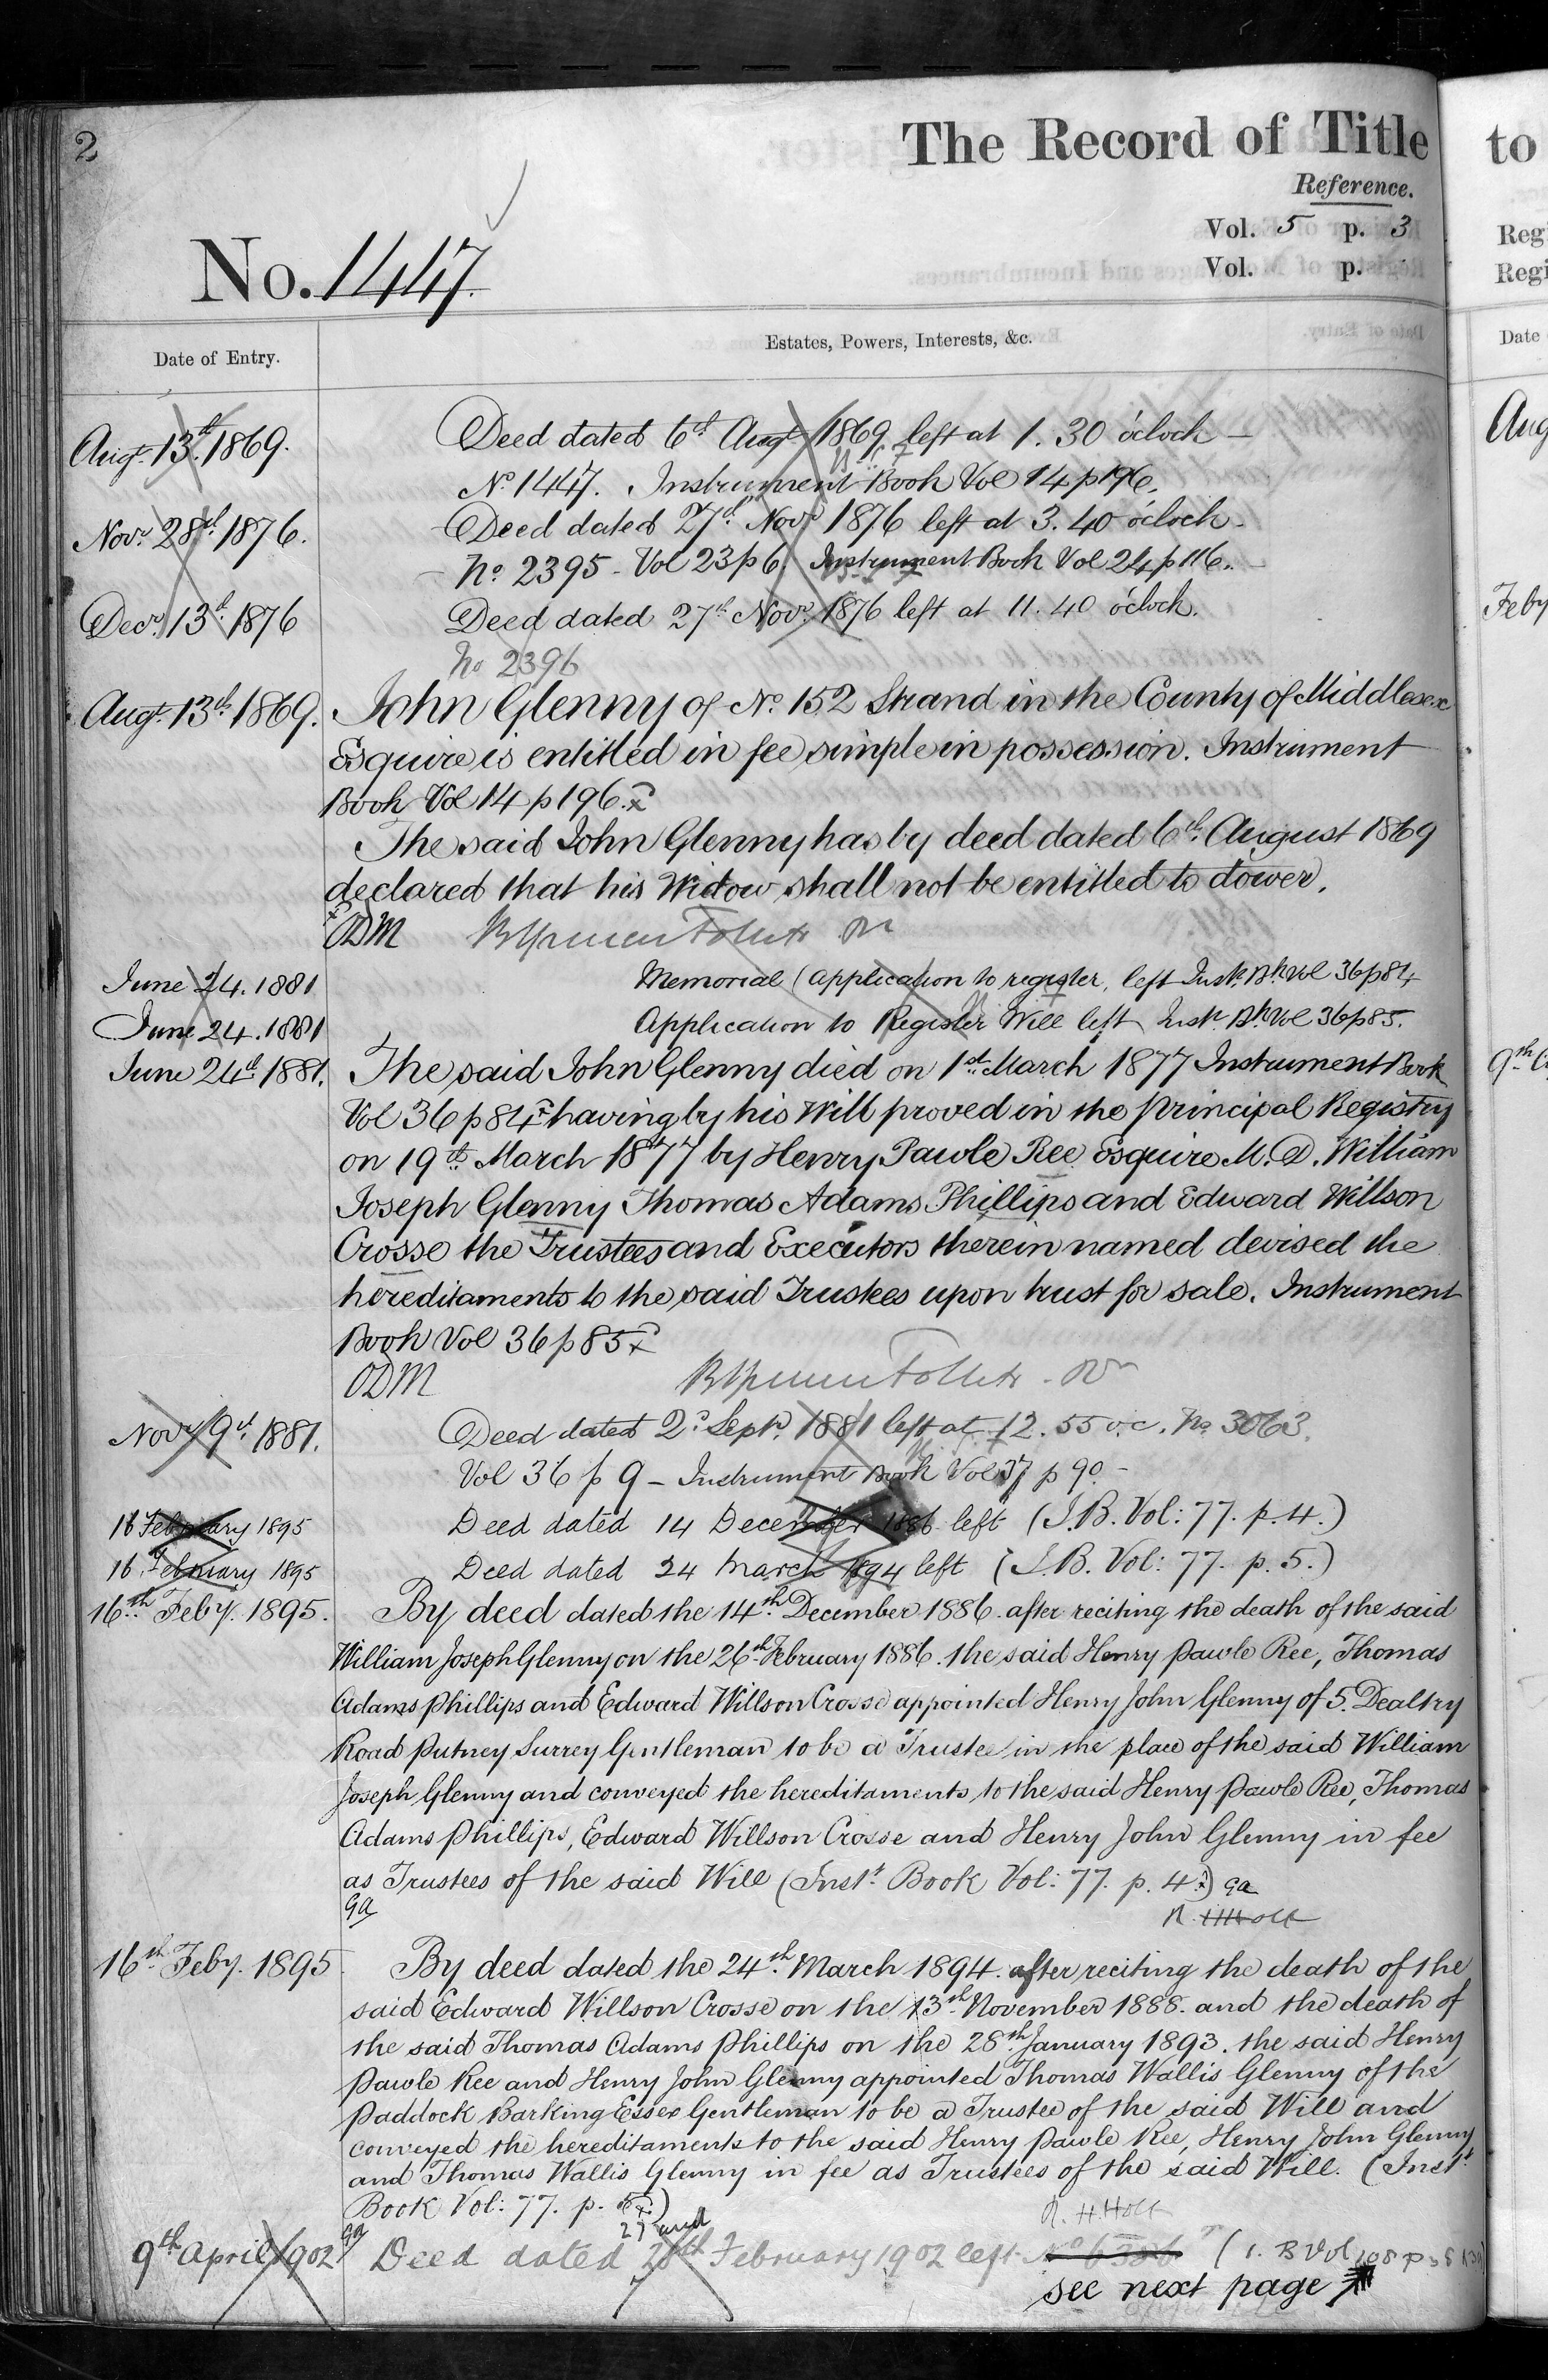 2
The Record of Title
Reference.
Vol. 5 p. 3
Vol. p.
No. 1447.
Date of Entry.
Estates, Powers, Interests, &c.
Augt. 13th 1869.
Deed dated 6th Augt 1869 left at 1.30 o'clock —
No 1447. Instrument Book Vol 14 p 196.
Novr 28th 1876.
Deed dated 27th Novr 1876 left at 3.40 o'clock —
No 2395 - Vol 23 p 6. Instrument Book Vol 24 p 116.
Decr 13th 1876
Deed dated 27th Novr 1876 left at 11.40 o'clock.
No 2396
Augt. 13th 1869.
John Glenny of No. 152 Strand in the County of Middlesex
Esquire is entitled in fee simple in possession. Instrument
Book Vol 14 p 196.
The said John Glenny has by deed dated 6th August 1869
declared that his Widow shall not be entitled to dower.
ODM
June 24. 1881
Memorial (application to register, left Inst. Bk Vol 36 p 84
June 24. 1881
Application to Register Will left Inst. Bk Vol 36 p 85.
June 24th 1881.
The said John Glenny died on 1st March 1877 Instrument Book
Vol 36 p 84 having by his Will proved in the Principal Registry
on 19th March 1877 by Henry Pawle Ree Esquire M.D. William
Joseph Glenny Thomas Adams Phillips and Edward Willson
Crosse the Trustees and Executors therein named devised the
hereditaments to the said Trustees upon trust for sale. Instrument
Book Vol 36 p 85
ODM
Novr 9th 1881.
Deed dated 2d Septr. 1881 left at 12.55 o.c. No 3063.
Vol 36 p 9 - Instrument Book Vol 37 p 90 -
16 February 1895
Deed dated 14 December 1886 left (I.B. Vol: 77. p. 4.)
16 February 1895
Deed dated 24 March 1894 left (I.B. Vol: 77. p. 5.)
16th Feby. 1895.
By deed dated the 14th December 1886. after reciting the death of the said
William Joseph Glenny on the 26th February 1886. the said Henry Pawle Ree, Thomas
Adams Phillips and Edward Willson Crosse appointed Henry John Glenny of 5. Dealtry
Road Putney Surrey Gentleman to be a Trustee in the place of the said William
Joseph Glenny and conveyed the hereditaments to the said Henry Pawle Ree, Thomas
Adams Phillips, Edward Willson Crosse and Henry John Glenny in fee
as Trustees of the said Will (Inst. Book Vol: 77. p. 4.) GA
GA
R. H. Holt
16th Feby. 1895
By deed dated the 24th March 1894. after reciting the death of the
said Edward Willson Crosse on the 13th November 1888. and the death of
the said Thomas Adams Phillips on the 28th January 1893. the said Henry
Pawle Ree and Henry John Glenny appointed Thomas Wallis Glenny of the
Paddock Barking Essex Gentleman to be a Trustee of the said Will and
conveyed the hereditaments to the said Henry Pawle Ree, Henry John Glenny
and Thomas Wallis Glenny in fee as Trustees of the said Will. (Inst.
Book Vol: 77. p. 5.)
R. H. Holt
GA
27 and
9th April 1902
Deed dated 28th February 1902 left (I. B Vol 108 p
see next page
to
Regi
Regi
Date
Aug
Feby
9th